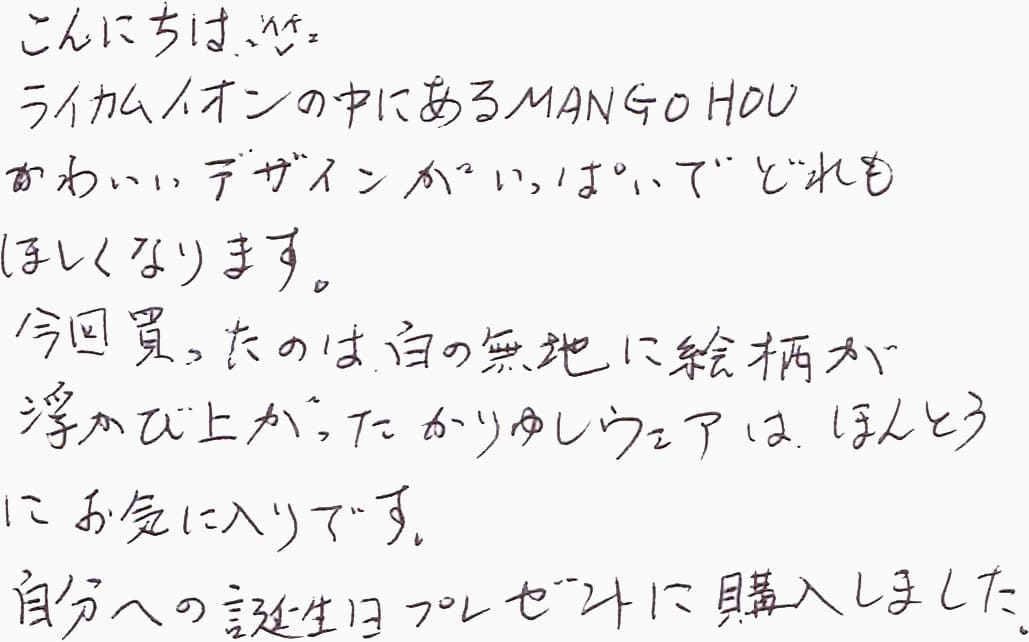 こんにちは
ライカムイオンの中にあるMANGO HOU
かわいいデザインがいっぱいでどれも
ほしくなります。
今回買ったのは白の無地に絵柄が
浮かび上がったかりゆしウェアは ほんとう
にお気に入りです。
自分への誕生日プレゼントに購入しました。